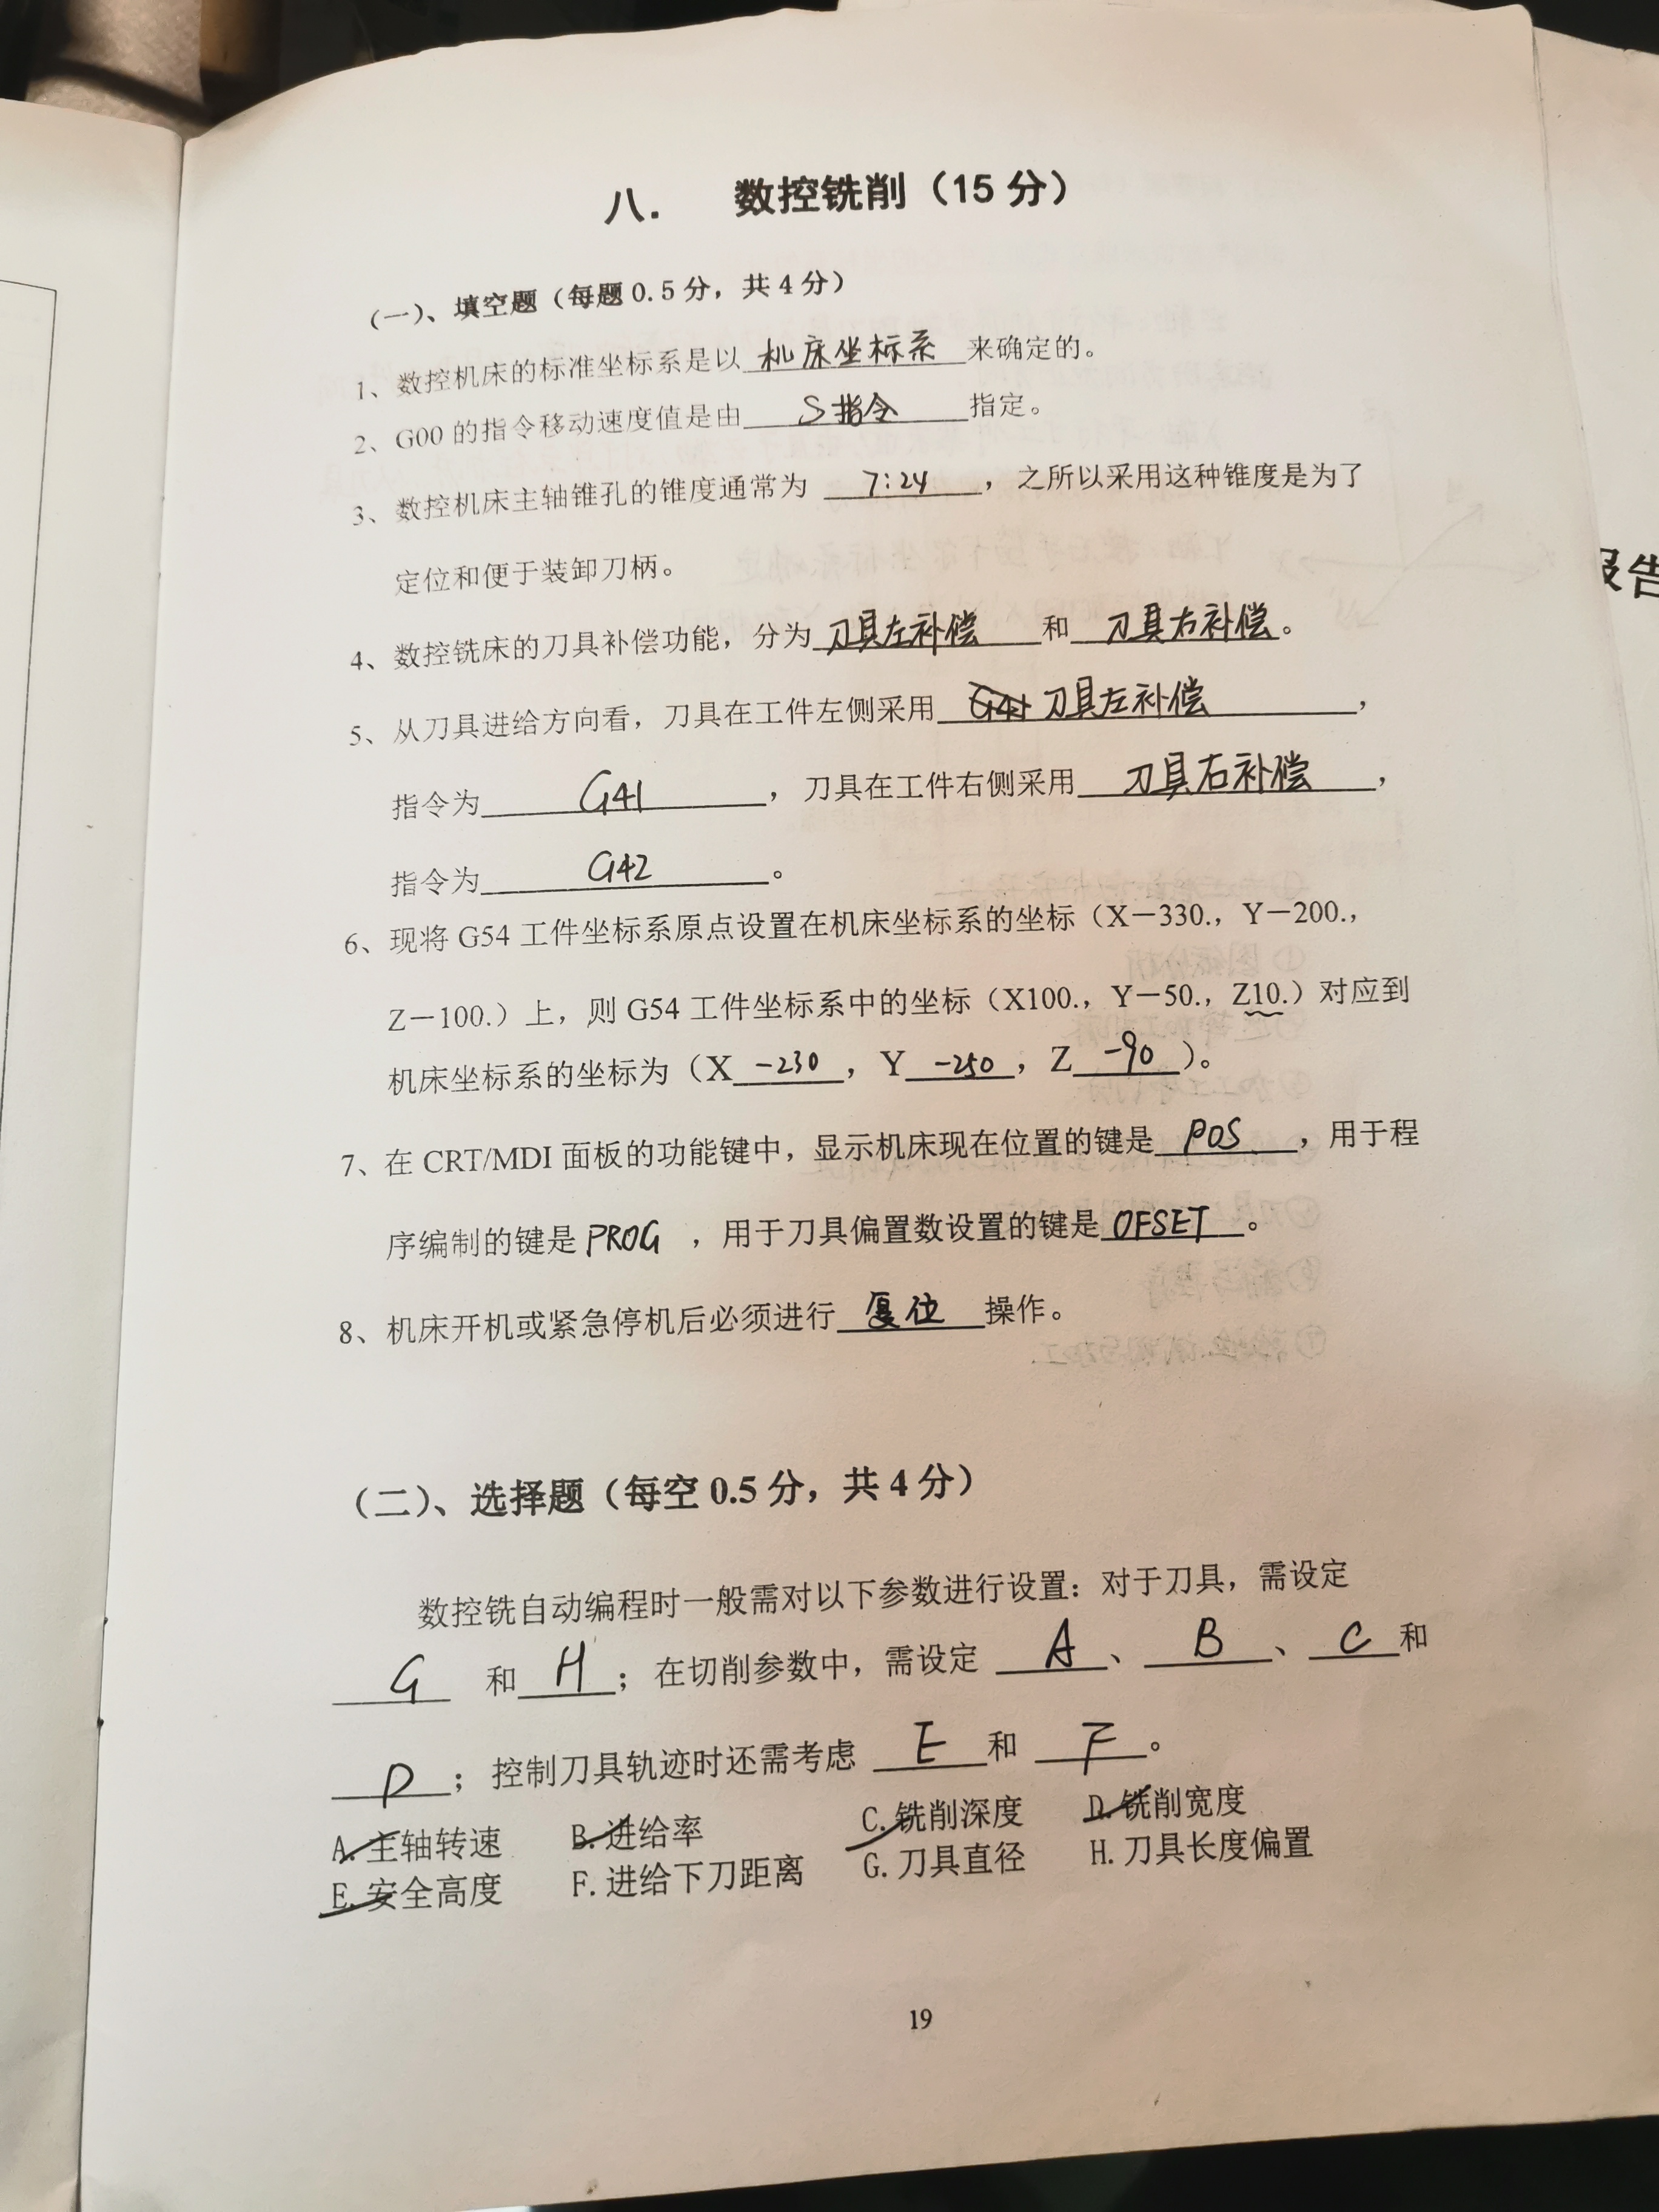 八. 数控铣削（15 分）
（一）、填空题（每题 0.5 分，共 4 分）
1、数控机床的标准坐标系是以 机床坐标系 来确定的。
2、G00 的指令移动速度值是由 S指令 指定。
3、数控机床主轴锥孔的锥度通常为 7:24 ，之所以采用这种锥度是为了
定位和便于装卸刀柄。
报告
4、数控铣床的刀具补偿功能，分为 刀具左补偿 和 刀具右补偿 。
5、从刀具进给方向看，刀具在工件左侧采用 G41 刀具左补偿 ，
指令为 G41 ，刀具在工件右侧采用 刀具右补偿 ，
指令为 G42 。
6、现将 G54 工件坐标系原点设置在机床坐标系的坐标（X－330.，Y－200.，
Z－100.）上，则 G54 工件坐标系中的坐标（X100.，Y－50.，Z10.）对应到
机床坐标系的坐标为（X -230 ，Y -250 ，Z -90 ）。
7、在 CRT/MDI 面板的功能键中，显示机床现在位置的键是 POS ，用于程
序编制的键是 PROG ，用于刀具偏置数设置的键是 OFSET 。
8、机床开机或紧急停机后必须进行 复位 操作。
（二）、选择题（每空 0.5 分，共 4 分）
数控铣自动编程时一般需对以下参数进行设置：对于刀具，需设定
G 和 H ；在切削参数中，需设定 A 、 B 、 C 和
D ；控制刀具轨迹时还需考虑 E 和 F 。
A. 主轴转速 B. 进给率 C. 铣削深度 D. 铣削宽度
E. 安全高度 F. 进给下刀距离 G. 刀具直径 H. 刀具长度偏置
19